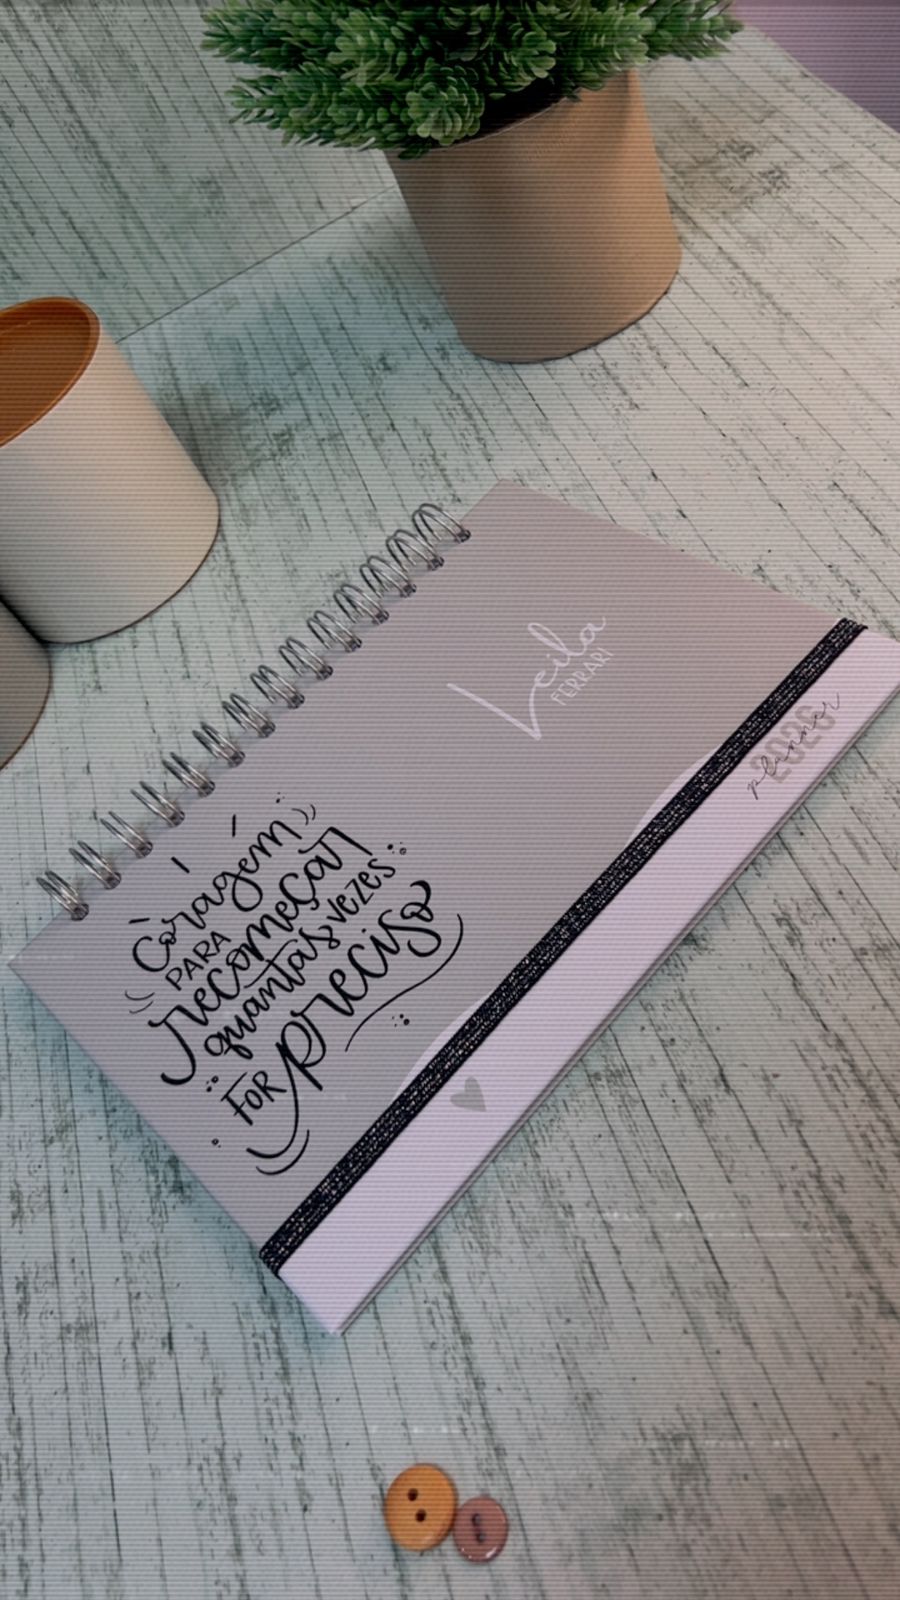 Leila
FERRARI
2026
planner
Coragem
PARA
recomeçar
quantas vezes
FOR preciso